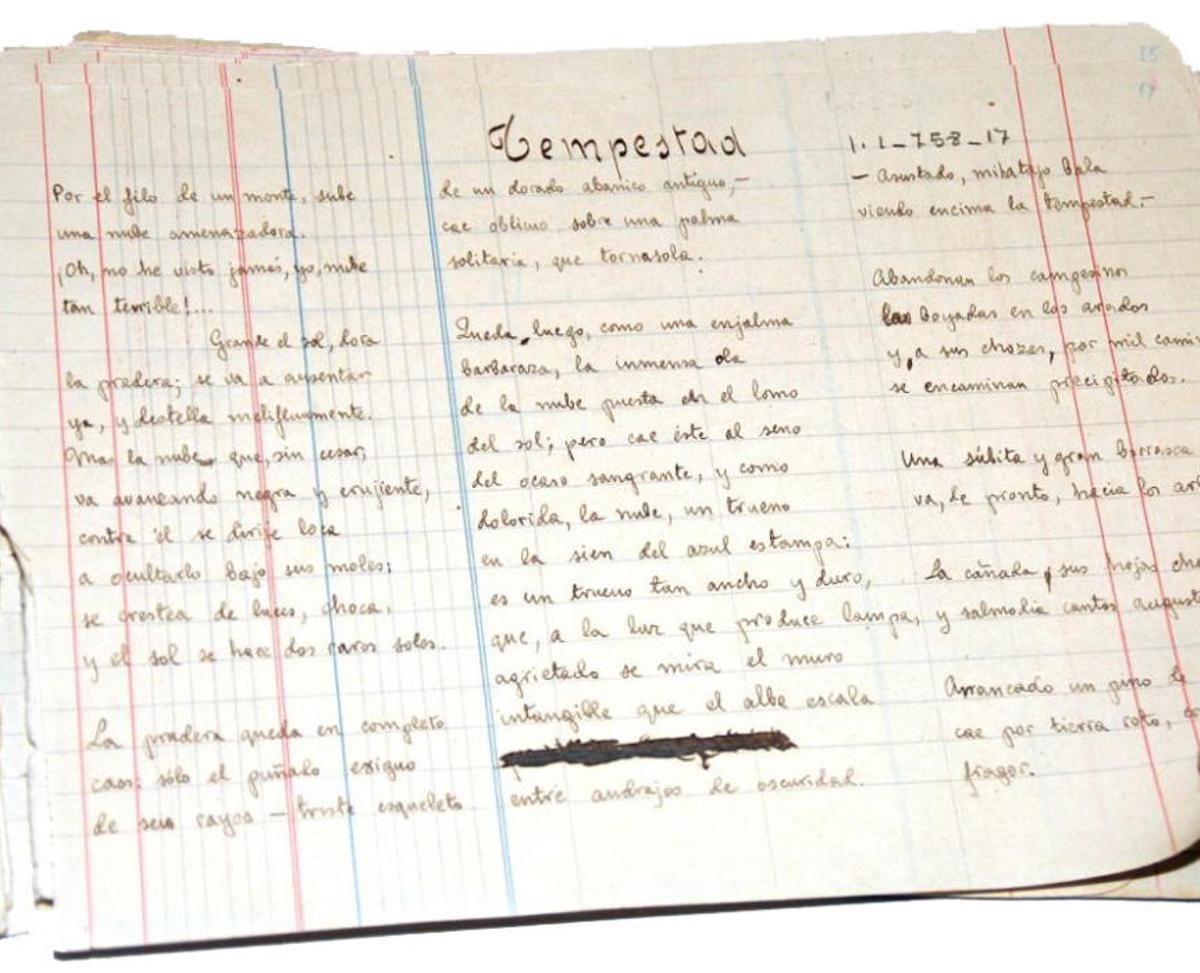 Tempestad
1.1-758-17
Por el filo de un monte, sube
una nube amenazadora.
¡Oh, no he visto jamás, yo, nube
tan terrible!...
Grande el sol, dora
la pradera; se va a ausentar
ya, y destella melifluamente.
Mas la nube que, sin cesar,
va avanzando negra y crujiente,
contra él se dirije loca
a ocultarlo bajo sus moles;
se crestea de luces, choca,
y el sol se hace dos raros soles.
La pradera queda en completo
caos; sólo el puñado exiguo
de sus rayos – triste esqueleto
de un dorado abanico antiguo, –
cae oblicuo sobre una palma
solitaria, que tornasola.
Queda, luego, como una enjalma
barbaraza, la inmensa ola
de la nube puesta en el lomo
del sol; pero cae éste al seno
del ocaso sangrante, y como
dolorida, la nube, un trueno
en la sien del azul estampa:
es un trueno tan ancho y duro,
que, a la luz que produce lampa,
agrietado se mira el muro
intangible que el alba escala
entre andrajos de oscuridad.
– Asustado, mi hatajo bala
viendo encima la tempestad. –
Abandonan los campesinos
las boyadas en los arados
y, a sus chozas, por mil
se encaminan precipitados.
Una súbita y gran borrasca
va, de pronto, hacia los
La cañada, sus hojas
y salmodia cantos
Arrancado un pino
cae por tierra roto,
fragor.